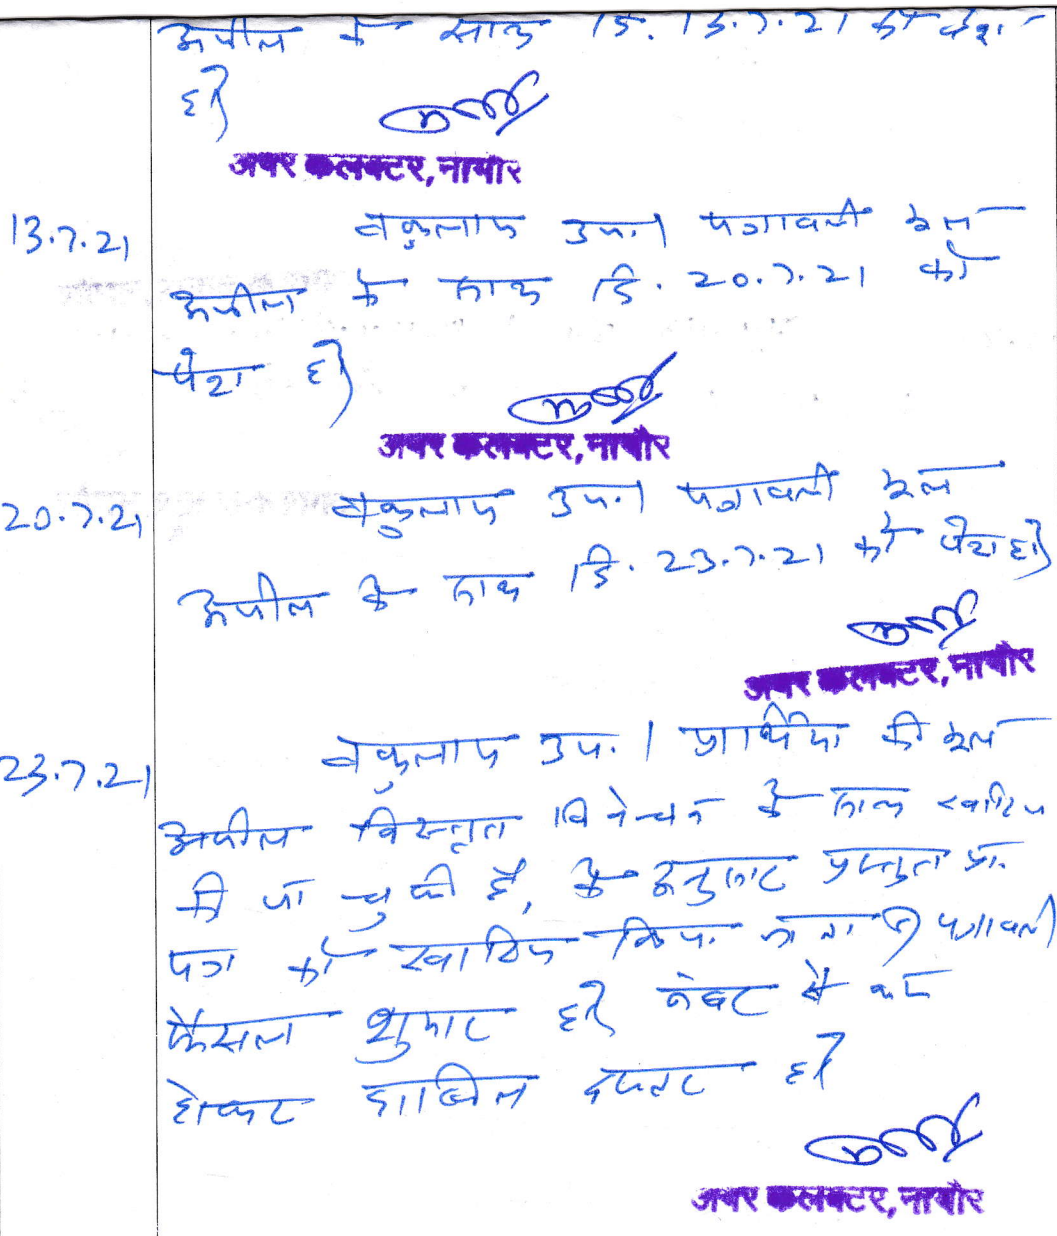 अपील के साथ दि. 13.7.21 को पेश
हो।
अपर कलक्टर, नागौर
13.7.21 वकुलाय उप.। पत्रावली मूल
अपील के साथ दि. 20.7.21 को
पेश हो।
अपर कलक्टर, नागौर
20.7.21 वकुलाय उप.। पत्रावली मूल
अपील के साथ दि. 23.7.21 को पेश हो।
अपर कलक्टर, नागौर
23.7.21 वकुलाय उप.। की मूल
अपील विस्तृत विवेचन के साथ खारिज
की जा चुकी है, के अनुसार प्रस्तुत प्रा.
पत्र को खारिज किया जाता है। पत्रावली
फैसल शुमार हो। नंबर से कम
होकर दाखिल दफ्तर हो।
अपर कलक्टर, नागौर